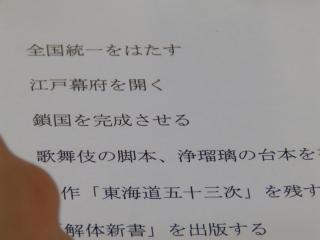 全国統一をはたす
江戸幕府を開く
鎖国を完成させる
歌舞伎の脚本、浄瑠璃の台本を
作「東海道五十三次」を残す
解体新書」を出版する